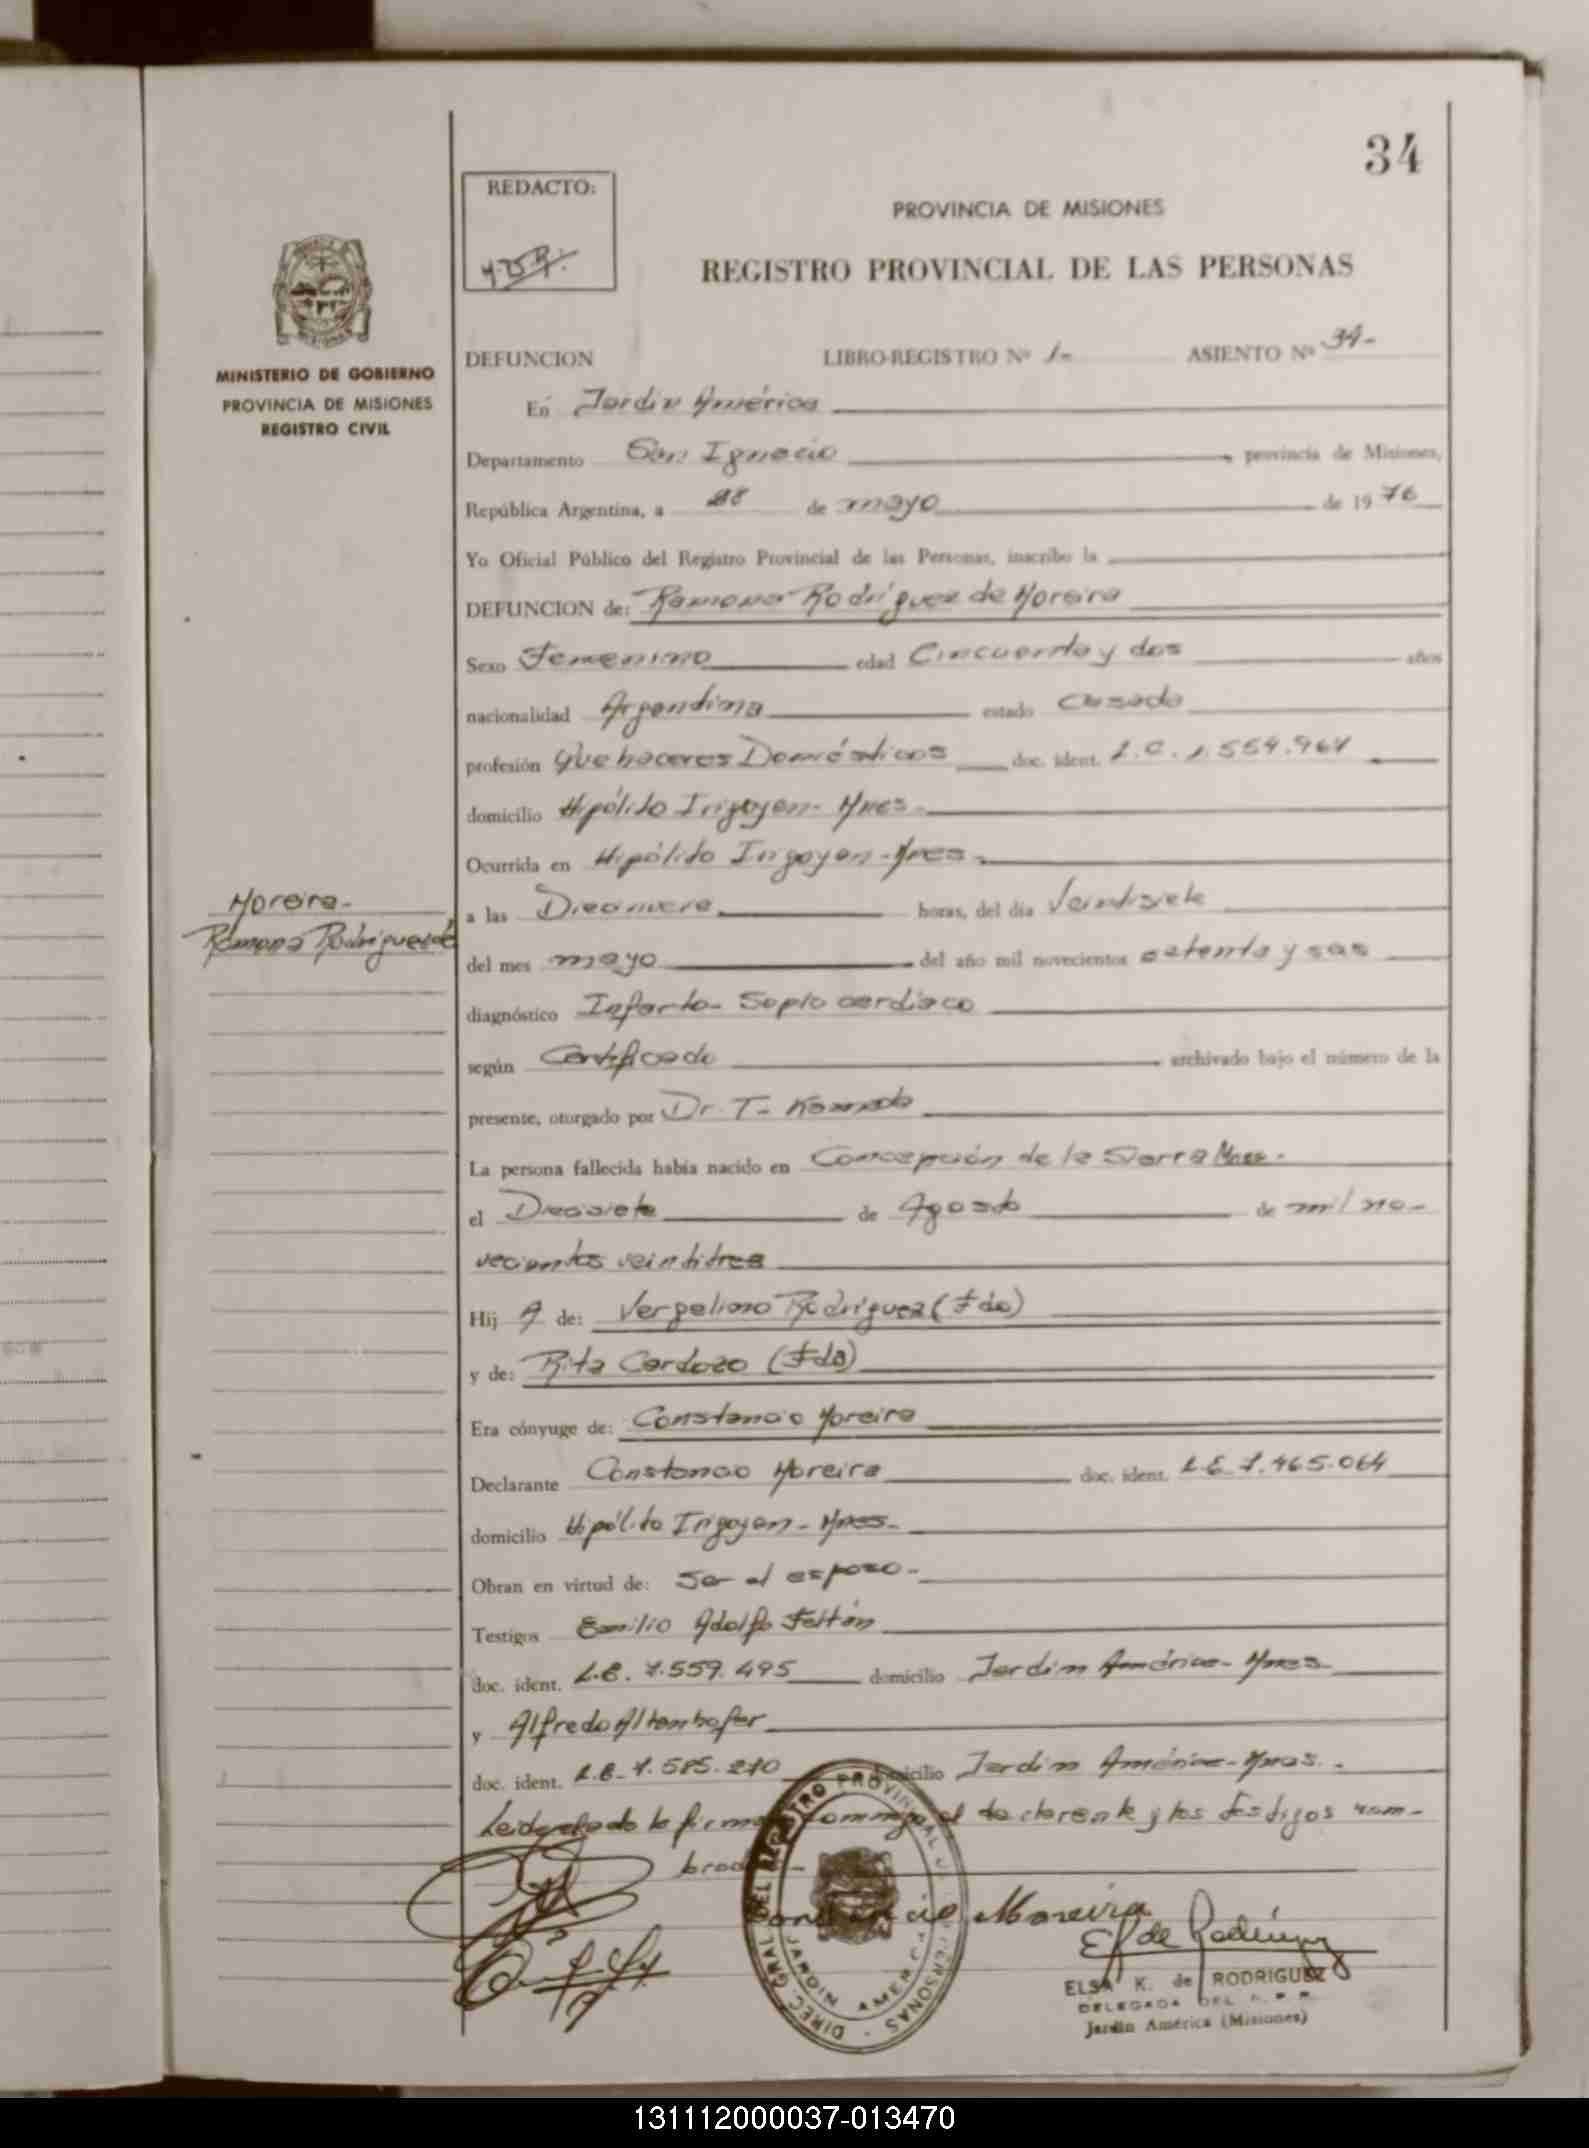 34
REDACTO:
PROVINCIA DE MISIONES
REGISTRO PROVINCIAL DE LAS PERSONAS
MINISTERIO DE GOBIERNO
PROVINCIA DE MISIONES
REGISTRO CIVIL
DEFUNCION LIBRO-REGISTRO Nº 1- ASIENTO Nº 34-
En Jardin América
Departamento San Ignacio provincia de Misiones,
República Argentina, a 28 de mayo de 1976
Yo Oficial Público del Registro Provincial de las Personas, inscribo la
DEFUNCION de: Ramona Rodríguez de Moreira
Sexo Femenino edad Cincuenta y dos años
nacionalidad Argentina estado Casada
profesión Quehaceres Domésticos doc. ident. L.C. 1.559.967
domicilio Hipólito Irigoyen- Mnes.
Ocurrida en Hipólito Irigoyen-Mnes.
Moreira-
Ramona Rodriguez de
a las Diecinueve horas, del día Veintisiete
del mes mayo del año mil novecientos setenta y seis
diagnóstico Infarto- Soplo cardiaco
según Certificado archivado bajo el número de la
presente, otorgado por Dr. T.
La persona fallecida había nacido en Concepción de la Sierra Mnes.
el Diecisiete de Agosto de mil no-
vecientos veintitres
Hij A de: Vergelino Rodriguez (Fdo)
y de: Rita Cardozo (Fda)
Era cónyuge de: Constancio Moreira
Declarante Constancio Moreira doc. ident. L.E. 7.465.064
domicilio Hipólito Irigoyen- Mnes.
Obran en virtud de: Ser el esposo-
Testigos Emilio Adolfo Feltán
doc. ident. L.E. 7.559.495 domicilio Jardin América- Mnes
y Alfredo Altenhofer
doc. ident. L.E. 7.585.270 domicilio Jardin América-Mnes.
Leida el acta la firma conmigo el declarante y los testigos nom-
brados-
Constancio Moreira
E K de Rodríguez
DIREC. GRAL DEL REGISTRO PROVINCIAL DE PERSONAS
JARDIN AMERICA
ELSA K. de RODRIGUEZ
DELEGADA DEL R.P.P.
Jardin América (Misiones)
131112000037-013470